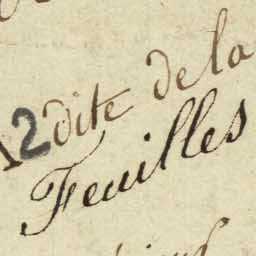 12 dite de la
Feuilles